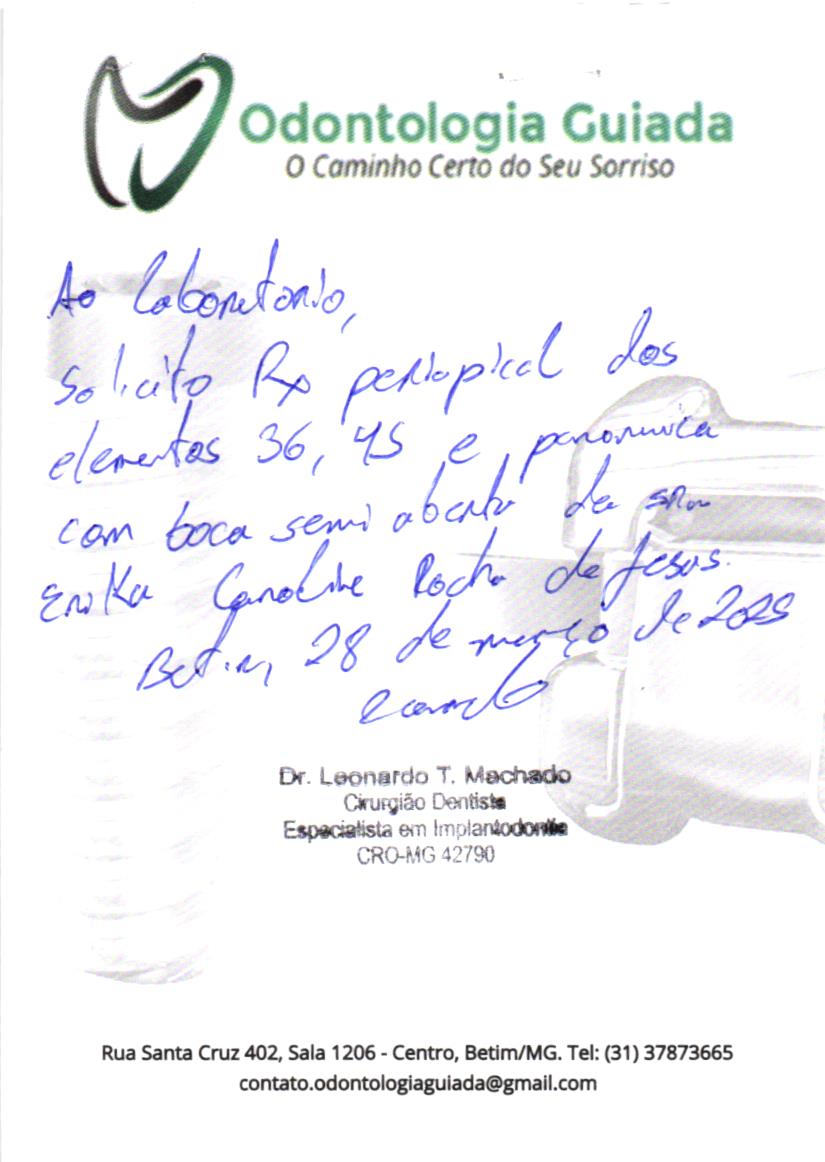 Odontologia Guiada
O Caminho Certo do Seu Sorriso
Ao Laboratorio,
Solicito Rx periapical dos
elementos 36, 45 e panoramica
com boca semi aberta da sra
Erika Caroline Rocha de Jesus.
Betim, 28 de março de 2025
Dr. Leonardo T. Machado
Cirurgião Dentista
Especialista em Implantodontia
CRO-MG 42790
Rua Santa Cruz 402, Sala 1206 - Centro, Betim/MG. Tel: (31) 37873665
contato.odontologiaguiada@gmail.com